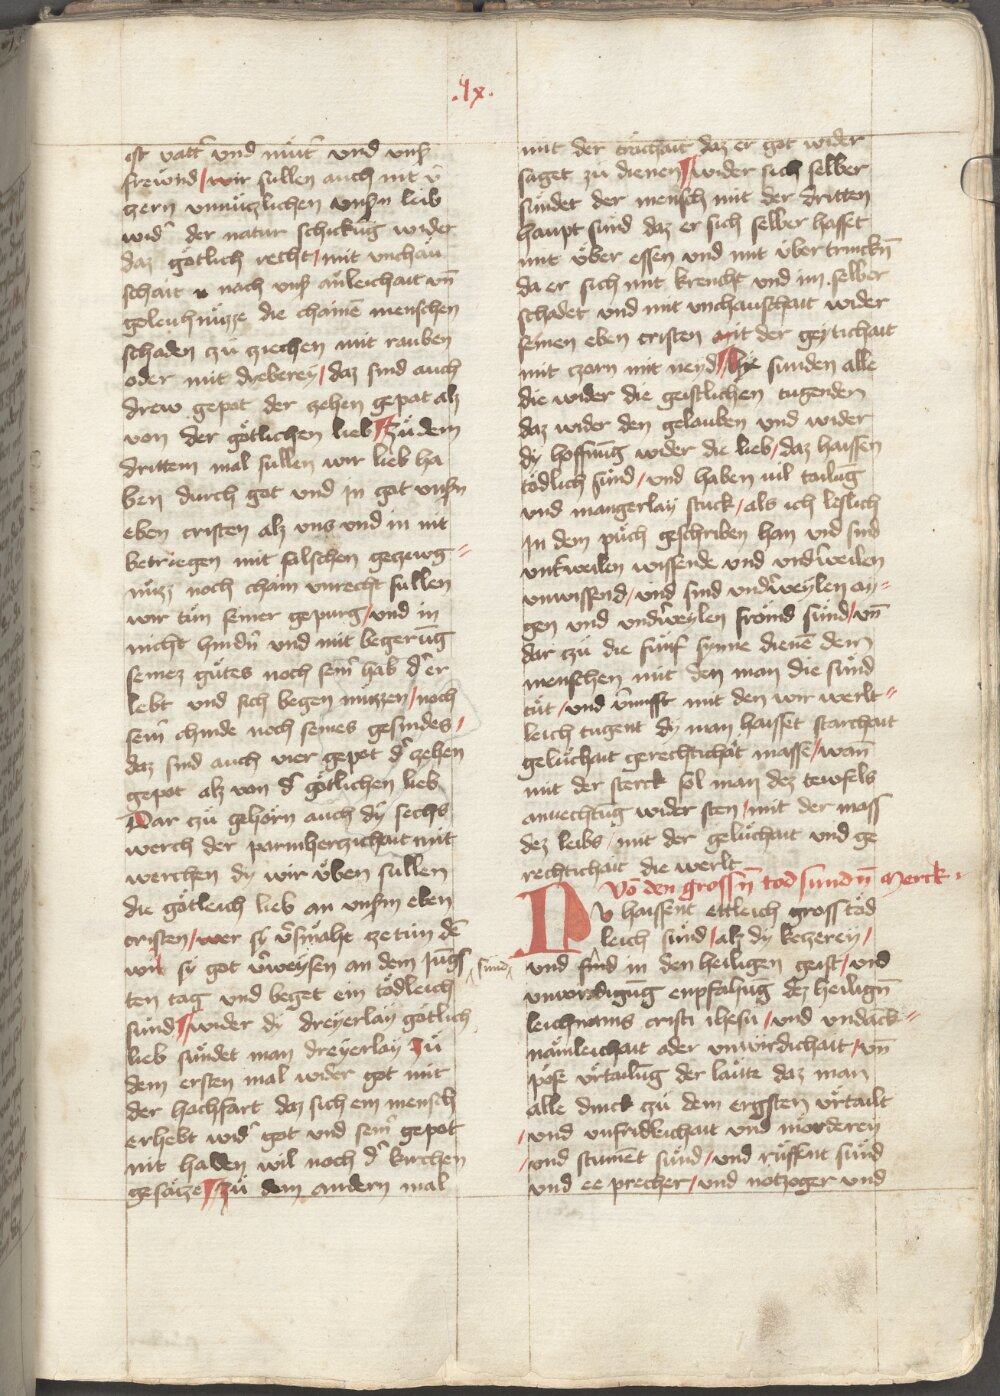 .lx.
ist vatt᷑ und můt᷑ und unß
frewnd / wir sullen auch nit v᷑
czern unnüczlichen unßn leib
wid᷑ der natur schickūg wider
daz götlich recht / mit unchäu
schait nach unß anleichait vn̄
geleuhnüzze die chainē menschen
schaden czü ziechen mit rauben
oder mit dyeberey / daz sind auch
drew gepot der zehen gepot alz
von der götlichen lieb Zů dem
drittem mal sullen wir lieb ha
ben durch got und in got unßn
eben cristen alz uns und in nit
betriegen mit falschen geczewg=
nüzz noch chain unrecht sullen
wir tün seiner gepurg / und in
nicht hindn᷑ und mit begerūg
seinez gůtes noch sein᷑ hab d᷑ er
lebt und sich begen müzzen / noch
sein᷑ chinde noch seines gesindes /
daz sind auch vier gepot d᷑ zehen
gepot alz von d᷑ götlichen lieb
Dar czü gehörn auch dy sechs
werch der parmherczichait mit
werchen dy wir üben sullen
die götleich lieb an unßm eben
cristen / wer sy v᷑smäht ze tün dē
wirt sy got v᷑weysen an dem jungß
ten tag und beget ein tödleich
sünd wider dy dreyerlay götlich
lieb sündet man dreyerlay Zü
dem ersten mal wider got mit
der hochfart daz sich ein mensch
erhebt wid᷑ got und sein gepot
nit halden wil noch d᷑ kirchen
gesäcze Zü dem andern mal
mit der trachait daz er got wider
saget zü dienen wider sich selber
sündet der mensch mit der dritten
haupt sünd daz er sich selber hasset
mit über essen und mit über trinckn̄
da er sich mit krencht und im selber
schadet und mit unchauschait wider
seinen eben cristen mit der geytichait
mit zorn mit neyd dye sunden alle
die wider die geistlichen tugenden
daz wider den gelauben und wider
dy hoffnūg wider die lieb / daz haissen
tödlich sünd / und haben vil tailūg
und mangerlay stuck / als ich leslich
in dem püch geschriben han und sind
unt᷑weilen wissende und und᷑weilen
unwissend / und sind und᷑weylen ay=
gen und und᷑weylen fröind sünd / vn̄
dar czü die fünf synne dienē dem
menschen mit den man die sünd
tüt / und v᷑nufft mit den wir werlt=
leich tugent dy man haisset starchait
gelüchait gerechtichait masse / wan̄
mit der sterck sol man dez tewfels
anvechtūg wider sten / mit der mass
dez leibs / mit der gelüchait und ge
rechtichait die werlt
Vō den grossn̄ tod sundn̄ Merck
Dy haissent ettleich gross töd
leich sünd / alz dy keczerey /
sünd
und sünd in den heiligen geist / und
unwirdigūg enpfahūg dez heilign̄
leichnams cristi ihesu / und undack=
nämleichait oder unwirdichait / vn̄
pöse urtailūg der läute daz man
alle dinck zü dem ergsten urtailt
/ und unfridleichait und mörderey
/ und stumēt sünd / und rüffent sünd
und ee precher / und notzoger und